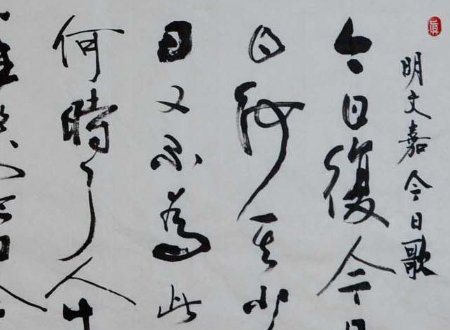 明文嘉今日歌
今日復今
日何其少
日又不為此
何時了人